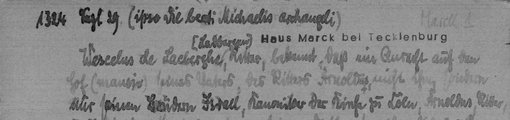 1324 Sept 29. (ipso die beati Michaelis archangeli) Marck I
[Ladbergen] Haus Marck bei Tecklenburg
Wescelus de Lecberghe, Ritter, bekennt, daß ein Anrecht auf den
Hof (mansio) seines Vaters, des Ritters Arnoldus, nicht ihm sondern
nur seinen Brüdern Fredell, Kanoniker der Kirche zu Cöln, Arnoldus, Ritter,